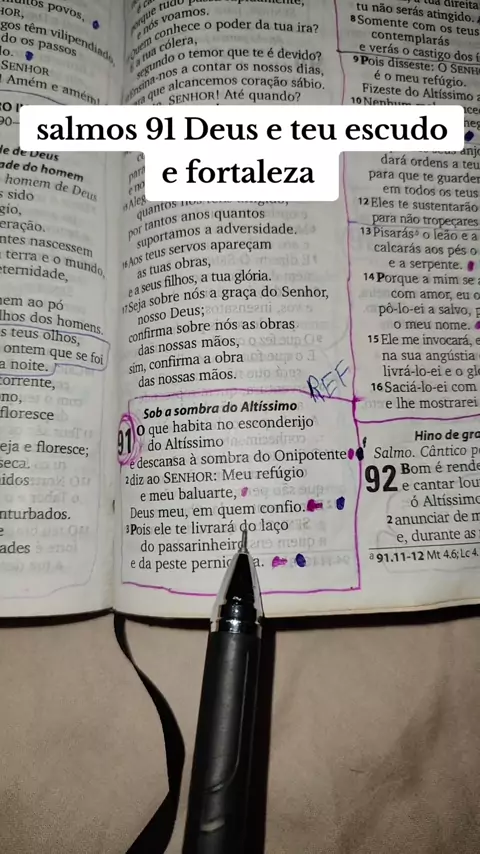 salmos 91 Deus e teu escudo
e fortaleza
povos,
HOR,
gos têm vilipendiado
do os passos
SENHOR
Amém e amém!
e nós voamos.
quem conhece o poder da tua ira?
a tua cólera,
segundo o temor que te é devido?
a contar os nossos dias,
que alcancemos coração sábio.
SENHOR! Até quando?
90
ade do homem
homem de Deus
s sido
gio,
eração.
ntes nascessem
terra e o mundo,
eternidade,
em ao pó
lhos dos homens.
s teus olhos,
ontem que se foi
a noite.
corrente,
ono,
floresce
eja e floresce;
seca.
nturbados.
e
ades
por tantos anos quantos
suportamos a adversidade.
16Aos teus servos apareçam
as tuas obras,
e a seus filhos, a tua glória.
17Seja sobre nós a graça do Senhor,
nosso Deus;
confirma sobre nós as obras
das nossas mãos,
sim, confirma a obra
das nossas mãos.
REF
Sob a sombra do Altíssimo
91 O que habita no esconderijo
do Altíssimo
e descansa à sombra do Onipotente
2diz ao SENHOR: Meu refúgio
e meu baluarte,
Deus meu, em quem confio.
3Pois ele te livrará do laço
do passarinheiro
e da peste
tua direita
tu não serás atingido.
8Somente com os teus
contemplarás
e verás o castigo dos
9Pois disseste: O SENHOR
é o meu refúgio.
Fizeste do Altíssimo a
10Nenhum
dará ordens a teu
para que te guardem
em todos os teus
12Eles te sustentarão
para não tropeçares
13Pisarás o leão e a
calcarás aos pés o
e a serpente.
14Porque a mim se a
com amor, eu o
pô-lo-ei a salvo, p
o meu nome.
15Ele me invocará, e
na sua angústia
livrá-lo-ei e o gl
16Saciá-lo-ei com
e lhe mostrarei
Hino de gra
Salmo. Cântico p
92 Bom é rende
e cantar lou
ó Altíssimo
2anunciar de m
e, durante as
a 91.11-12 Mt 4.6; Lc 4.